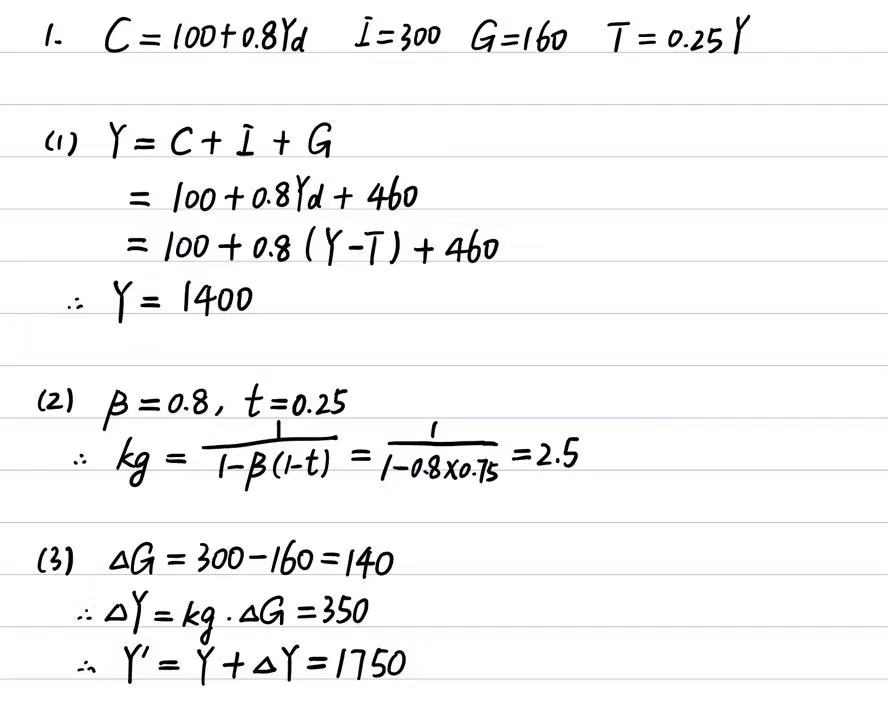 1. C = 100+0.8Yd I=300 G=160 T = 0.25Y
(1) Y = C + I + G
= 100 + 0.8Yd + 460
= 100 + 0.8 (Y-T) + 460
∴ Y = 1400
(2) β = 0.8, t = 0.25
∴ kg = 1/(1-β(1-t)) = 1/(1-0.8×0.75) = 2.5
(3) ΔG = 300-160 = 140
∴ ΔY = kg · ΔG = 350
∴ Y' = Y + ΔY = 1750